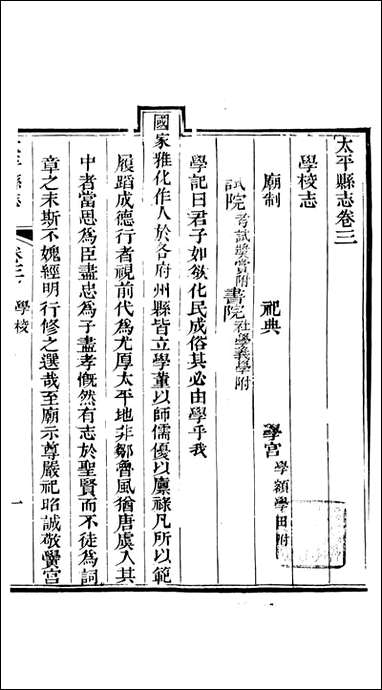 太平縣志卷三
學校志
廟制　祀典　學宮學額學田附
試院考試獎賞附　書院社學義學附
學記曰君子如欲化民成俗其必由學乎我
國家雅化作人於各府州縣皆立學董以師儒優以廩祿凡所以範
履蹈成德行者視前代為尤厚太平地非鄒魯風猶唐虞入其
中者當思為臣盡忠為子盡孝慨然有志於聖賢而不徒為詞
章之末斯不媿經明行修之選哉至廟示尊嚴祀昭誠敬黌宮
太平縣志　卷三　學校　一